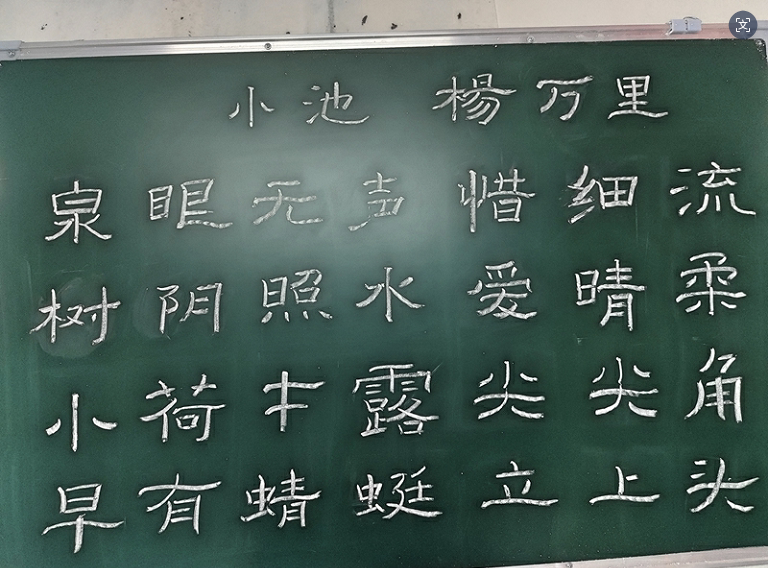 小池 楊万里
泉眼无声惜细流
树阴照水爱晴柔
小荷才露尖尖角
早有蜻蜓立上头